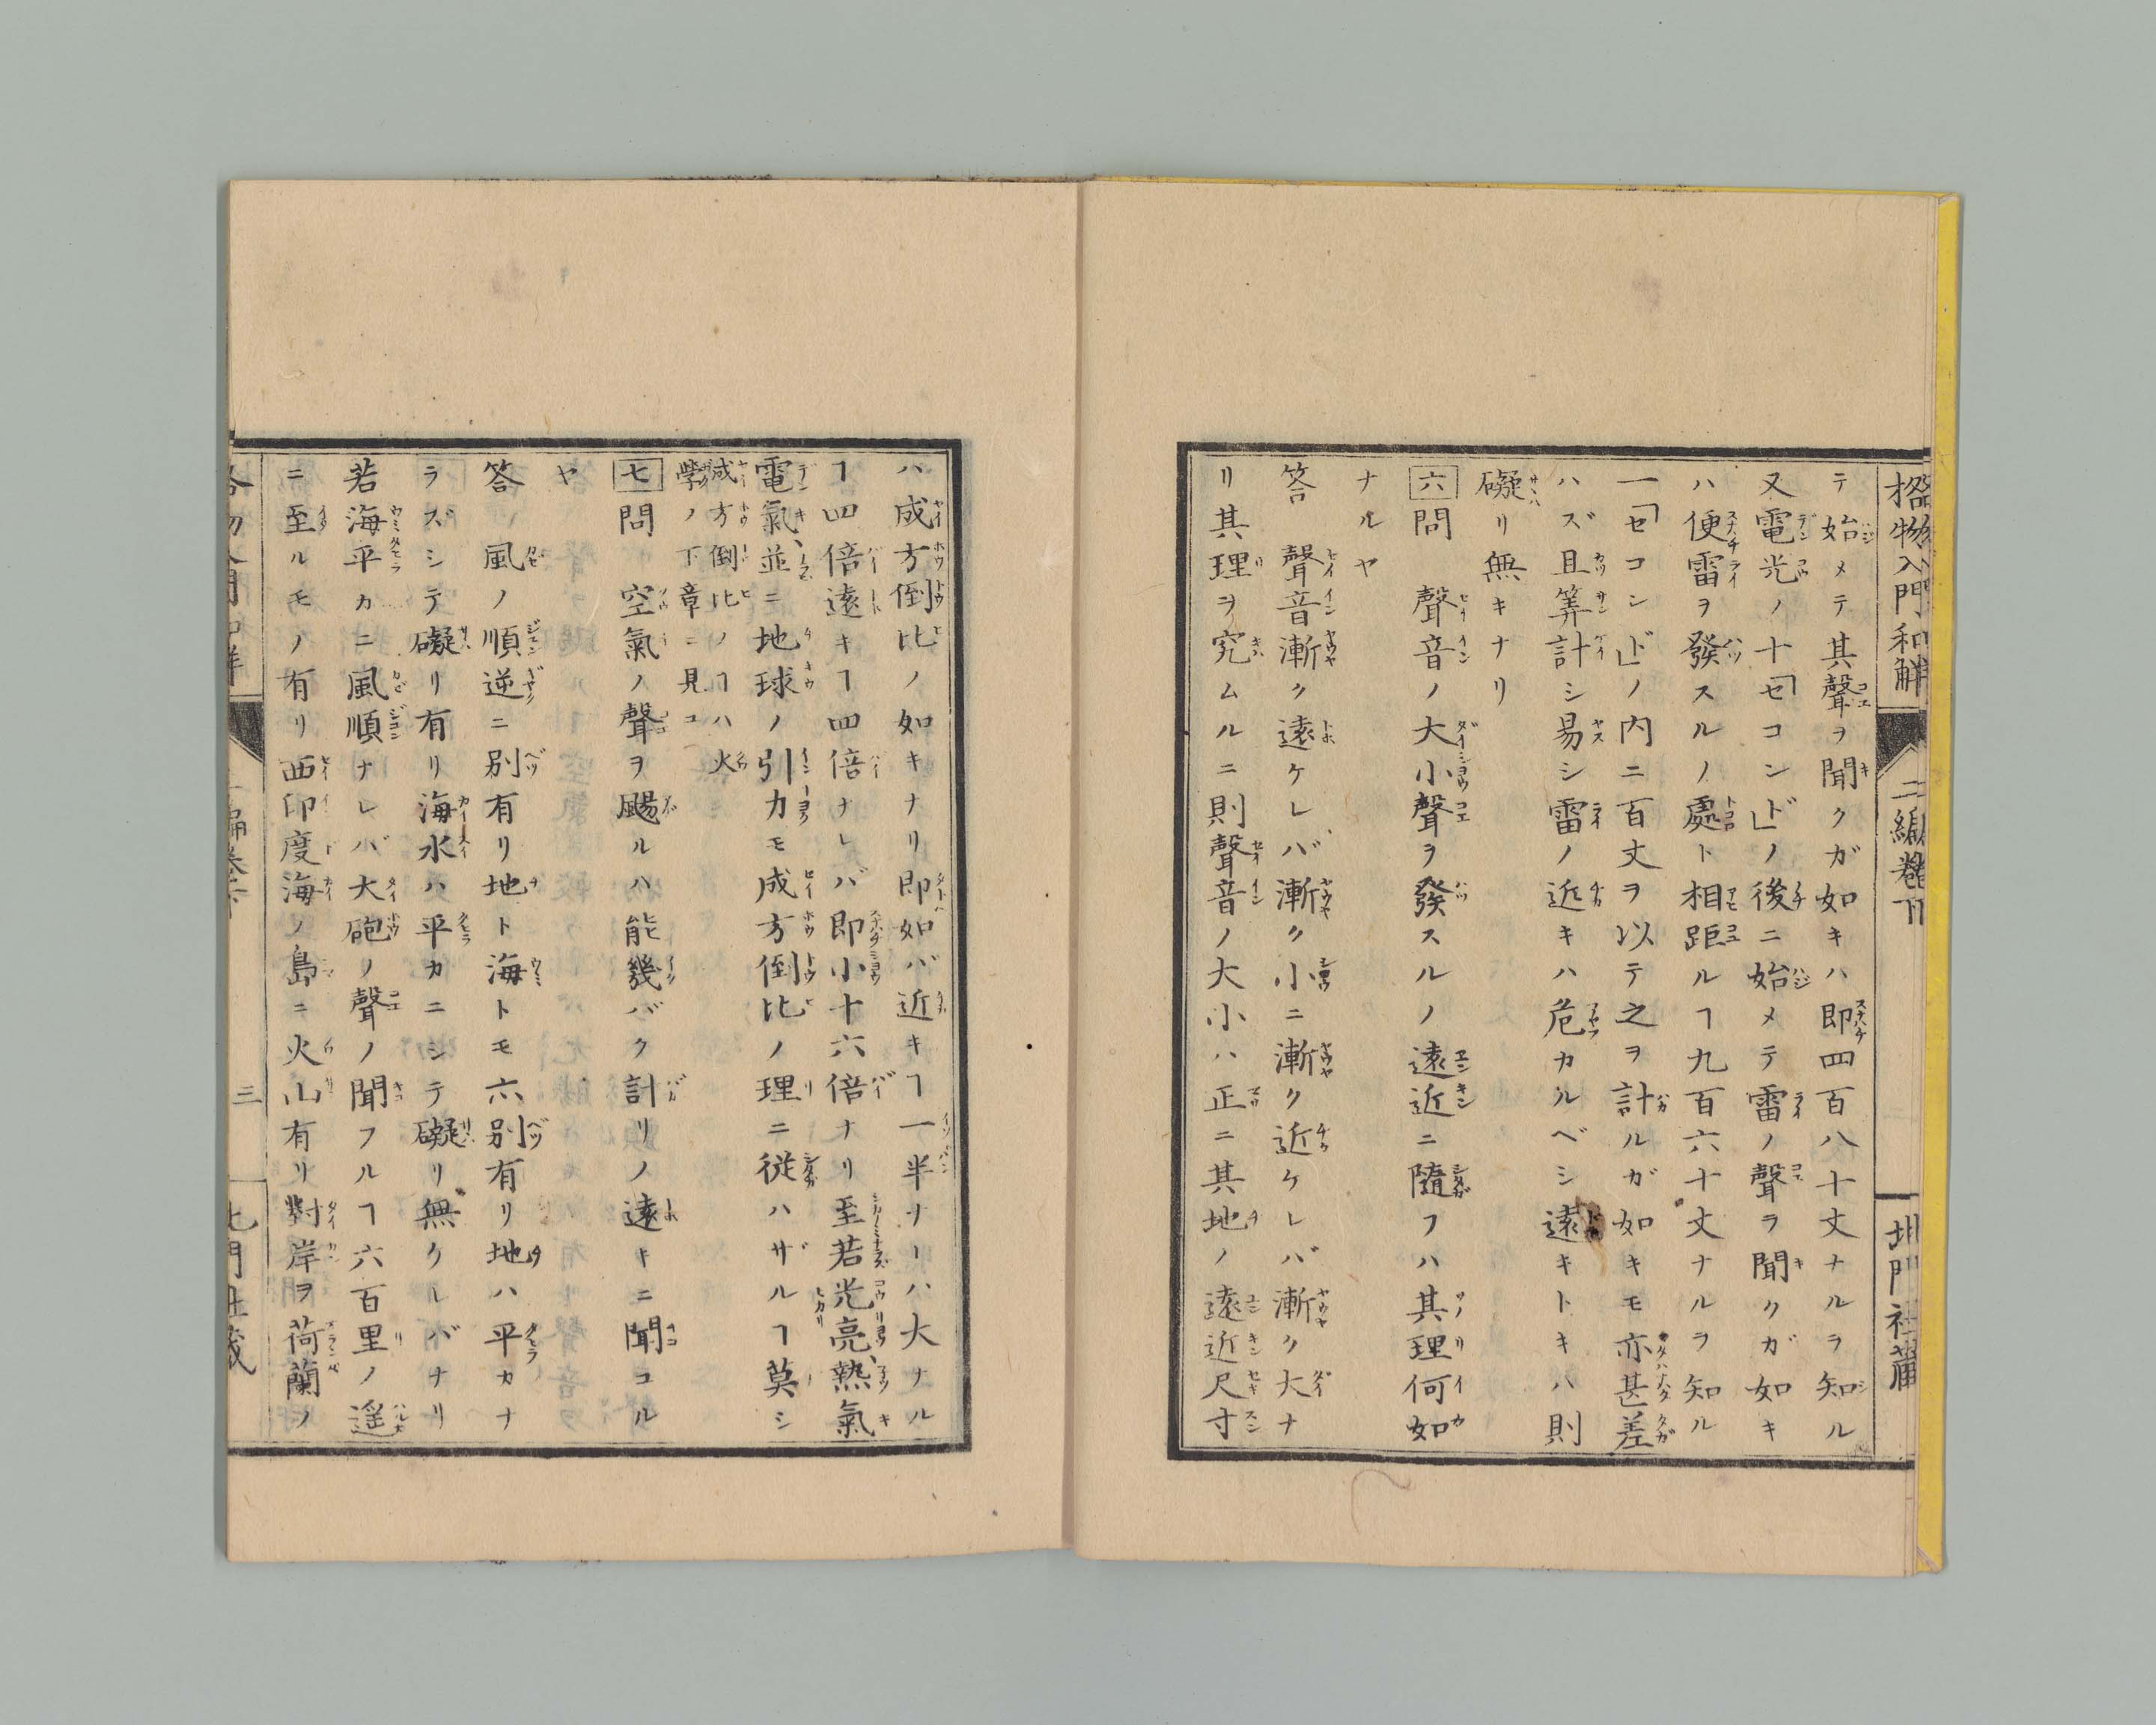 格物入門和解 二編卷下 北門社藏
テ始メテ其聲ヲ聞クガ如キハ即四百八十丈ナルヲ知ル
又電光ノ十「セコンド」ノ後ニ始メテ雷ノ聲ヲ聞クガ如キ
ハ便雷ヲ發スルノ處ト相距ルヿ九百六十丈ナルヲ知ル
一「セコンド」ノ内ニ百丈ヲ以テ之ヲ計ルガ如キモ亦甚差
ハズ且筭計シ易シ雷ノ近キハ危カルベシ遠キトキハ則
礙リ無キナリ
六問 聲音ノ大小聲ヲ發スルノ遠近ニ隨フハ其理何如
ナルヤ
答 聲音漸ク遠ケレバ漸ク小ニ漸ク近ケレバ漸ク大ナ
リ其理ヲ究ムルニ則聲音ノ大小ハ正ニ其地ノ遠近尺寸
ハ成方倒比ノ如キナリ即如バ近キヿ一半ナレハ大ナル
ヿ四倍遠キヿ四倍ナレバ即小十六倍ナリ至若光亮、熱氣
電氣、並ニ地球ノ引力モ成方倒比ノ理ニ從ハザルヿ莫シ
成方倒比ノヿハ火
學ノ下章ニ見ユ
七問 空氣ノ聲ヲ颺ルハ能幾バク計リノ遠キニ聞コル
ヤ
答 風ノ順逆ニ別有リ地ト海トモ亦別有リ地ハ平カナ
ラズシテ礙リ有リ海水ハ平カニシテ礙リ無クレバナリ
若海平カニ風順ナレバ大砲ノ聲ノ聞フルヿ六百里ノ遥
ニ至ルモノ有リ西印度海ノ島ニ火山有リ對岸ヲ荷蘭ノ
三